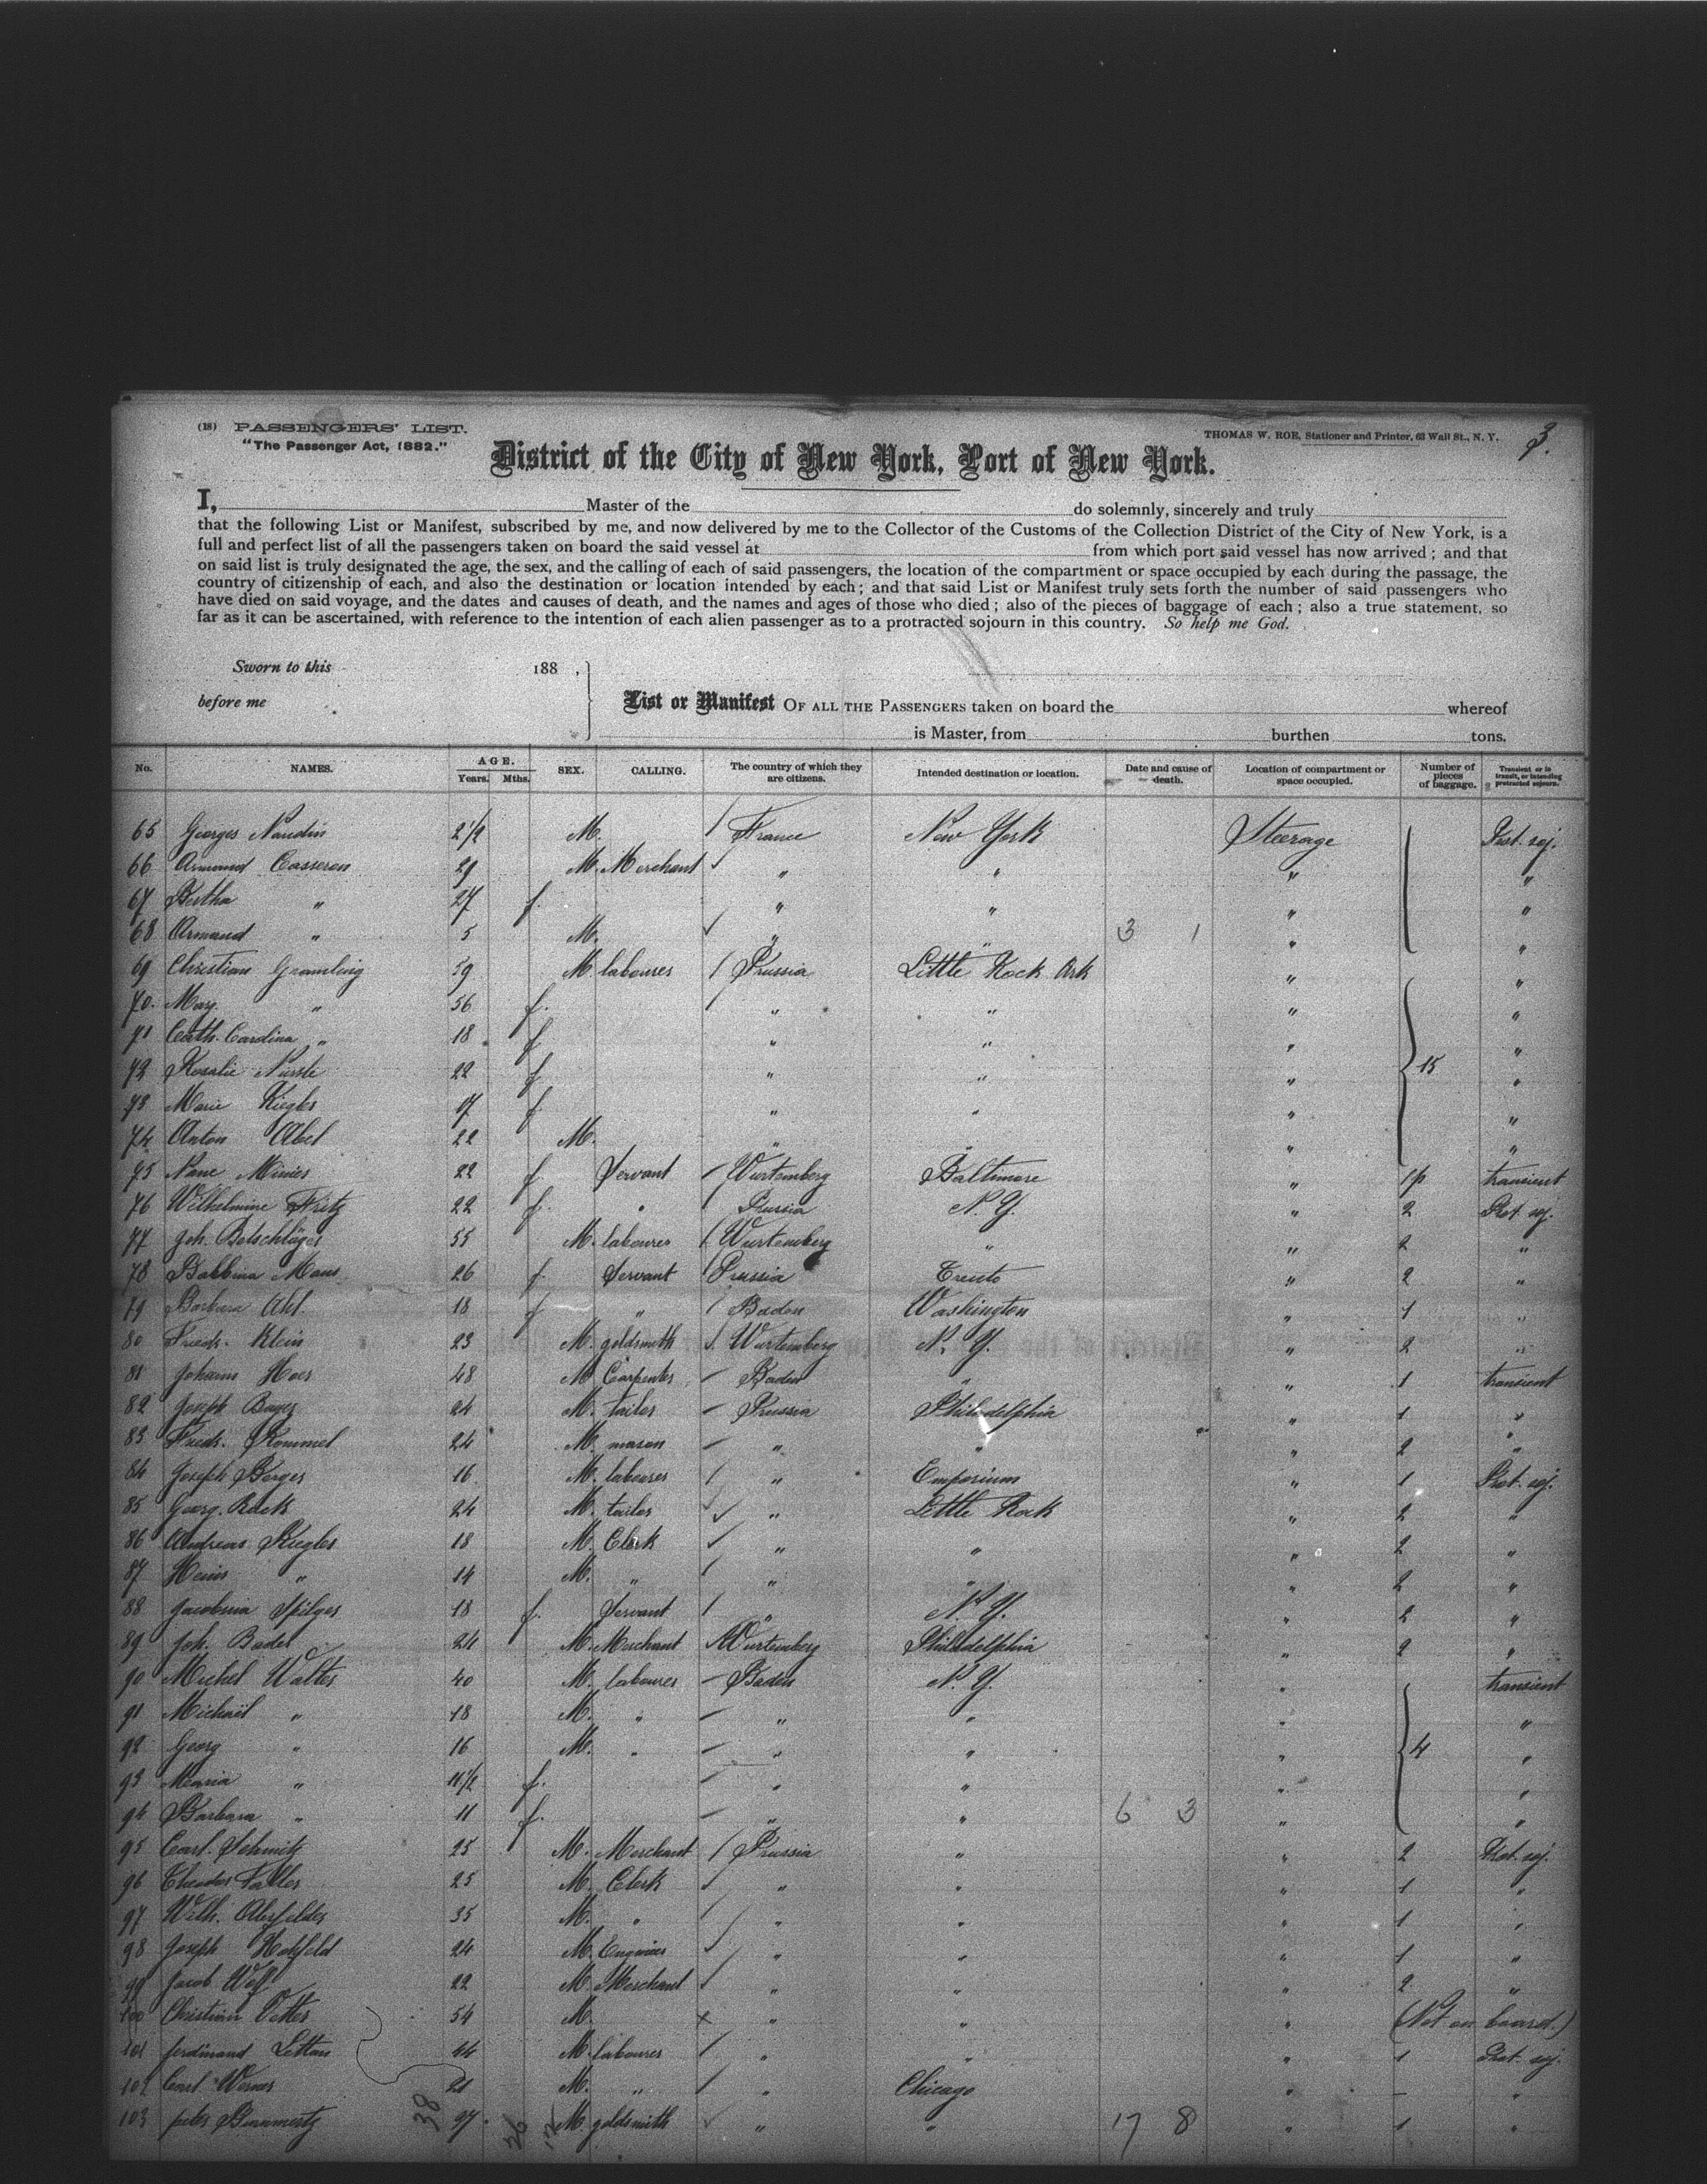 (18) PASSENGERS' LIST.
"The Passenger Act, 1882."
THOMAS W. ROE, Stationer and Printer, 62 Wall St., N. Y.
3.
District of the City of New York, Port of New York.
I, Master of the do solemnly, sincerely and truly
that the following List or Manifest, subscribed by me, and now delivered by me to the Collector of the Customs of the Collection District of the City of New York, is a
full and perfect list of all the passengers taken on board the said vessel at from which port said vessel has now arrived; and that
on said list is truly designated the age, the sex, and the calling of each of said passengers, the location of the compartment or space occupied by each during the passage, the
country of citizenship of each, and also the destination or location intended by each; and that said List or Manifest truly sets forth the number of said passengers who
have died on said voyage, and the dates and causes of death, and the names and ages of those who died; also of the pieces of baggage of each; also a true statement, so
far as it can be ascertained, with reference to the intention of each alien passenger as to a protracted sojourn in this country. So help me God.
Sworn to this 188 ,
before me
List or Manifest OF ALL THE PASSENGERS taken on board the whereof
is Master, from burthen tons.
No. NAMES. AGE. Years. Mths. SEX. CALLING. The country of which they are citizens. Intended destination or location. Date and cause of death. Location of compartment or space occupied. Number of pieces of baggage. Transient or in transit, or intending protracted sojourn.
65 Georges Naudin 2 1/2 M. France New York Steerage Prot. soj.
66 Armand Casseren 29 M. Merchant " " " "
67 Bertha " 27 f. " " " "
68 Armand " 5 M. " " 3 1 " "
69 Christian Gramling 59 M. labourer Prussia Little Rock Ark " "
70. Mary " 56 f. " " " "
71 Cath. Carolina " 18 f " " " "
72 Rosalie 22 f " " " 15 "
73 Marie Kiegler 17 f " " " "
74 Anton Abel 22 M. " " " "
75 Nane 22 f. Servant Wurtemberg Baltimore " 1p transient
76 Wilhelmine Fritz 22 f. " Prussia N. Y. " 2 Prot. soj.
77 Joh. Betschläger 55 M. labourer Wurtemberg " " 2 "
78 Babbina Maus 26 f. Servant Prussia " 2 "
79 Barbara Ahl. 18 f " Baden Washington " 1 "
80 Friedr. Klein 23 M. goldsmith Wurtemberg N. Y. " 2 "
81 Johann Hoer 48 M Carpenter Baden " " 1 transient
82 Joseph Bayer 24 M. tailor Prussia Philadelphia " 1 "
83 Friedr. Rommel 24 M. mason " " " 2 "
84 Joseph Berger 16 M. labourer " Emporium " 1 Prot. soj.
85 Georg. Rack 24 M. tailor " Little Rock " 2 "
86 Andreas Kiegler 18 M. Clerk " " " 2 "
87 " 14 M. " " " " 2 "
88 Jacobina Spilger 18 f. Servant " N. Y. " 2 "
89 Joh. Bader 24 M. Merchant Wurtemberg Philadelphia " 2 "
90 Michel Walter 40 M. labourer Baden N. Y. " transient
91 Michael " 18 M. " " " " "
92 Georg " 16 M. " " " " 4 "
93 Maria " 11 1/2 f. " " " "
94 Barbara " 11 f. " " 6 3 " "
95 Carl. Schmitz 25 M. Merchant Prussia " " 2 Prot. soj.
96 Theodor Faller 25 M. Clerk " " " 1 "
97 Wilh. 35 M. " " " " 1 "
98 Joseph 24 M. Engineer " " " 1 "
99 Jacob Wolf 22 M. Merchant " " " 2 "
100 Christian Vetter 54 M. x " " " (Not on board.)
101 ferdinand 44 M. labourer " " " 1 Prot. soj.
102 Carl Werner 21 M. " " Chicago " - "
103 peter 27 M. goldsmith " " 17 8 " 1 "
38 26 12